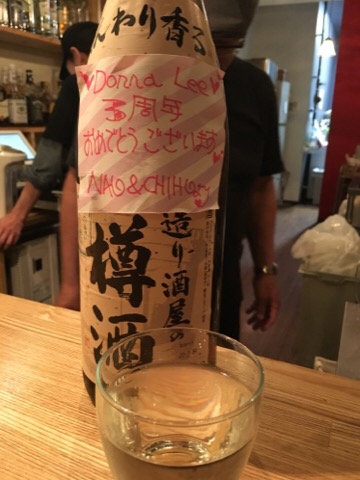 んわり香る
♥Donna Lee♥
3周年
おめでとうございます
NAO & CHIHARU
造り酒屋の
樽酒